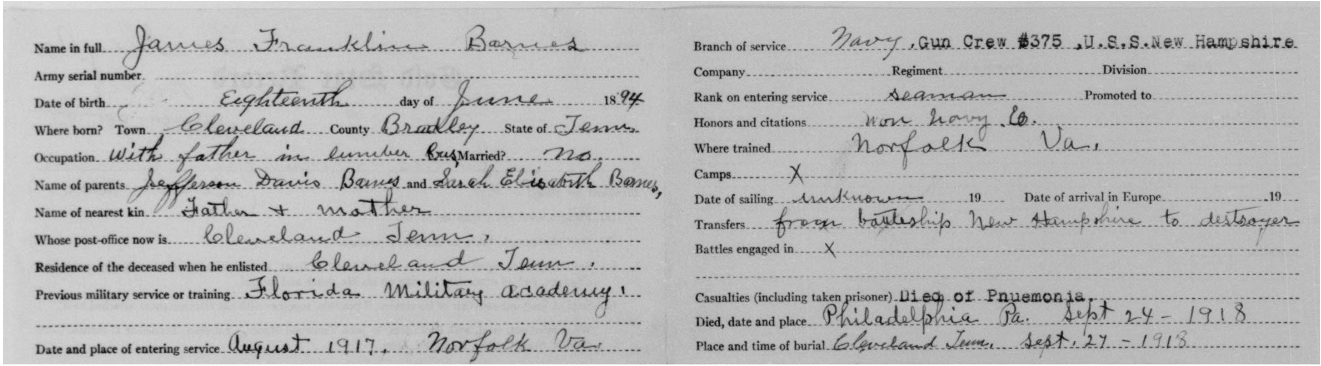 Name in full James Franklin Barnes
Army serial number
Date of birth Eighteenth day of June 1894
Where born? Town Cleveland County Bradley State of Tenn
Occupation With father in lumber bus, Married? no.
Name of parents Jefferson Davis Barnes and Sarah Elisabeth Barnes,
Name of nearest kin Father + mother
Whose post-office now is Cleveland Tenn.
Residence of the deceased when he enlisted Cleveland Tenn.
Previous military service or training Florida Military academy.
Date and place of entering service August 1917. Norfolk Va
Branch of service Navy, Gun Crew #375 ,U.S.S.New Hampshire
Company Regiment Division
Rank on entering service seaman Promoted to
Honors and citations won navy E.
Where trained Norfolk Va.
Camps X
Date of sailing unknown 19 Date of arrival in Europe 19
Transfers from battleship New Hampshire to destroyer
Battles engaged in X
Casualties (including taken prisoner) Died of Pnuemonia.
Died, date and place Philadelphia Pa. Sept 24 - 1918
Place and time of burial Cleveland Tenn, Sept. 27 - 1918